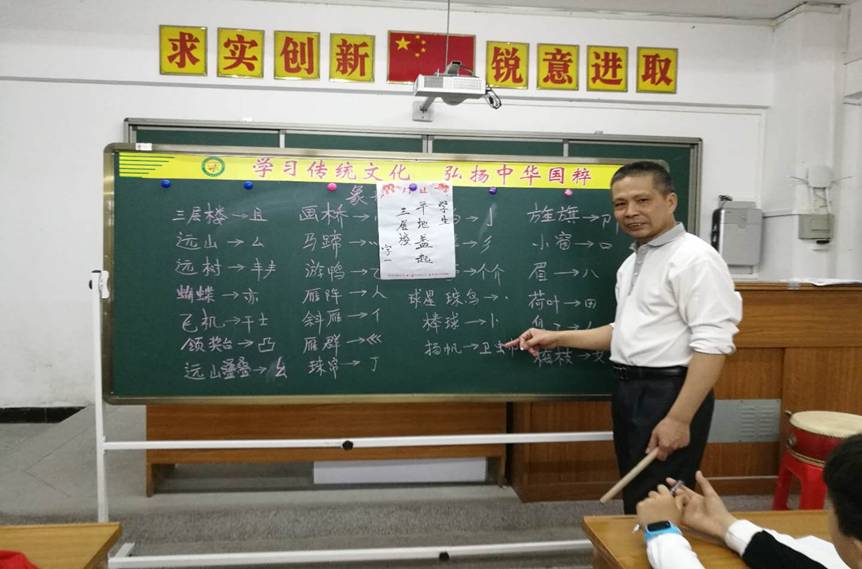 求实创新 锐意进取
学习传统文化 弘扬中华国粹
象
三层楼→且
远山→厶
远树→丰丰
蝴蝶→亦
飞机→干士
领奖台→凸
远山叠叠→幺
画桥→
马蹄→灬
游鸭→乙
雁阵→人
斜雁→亻
雁群→巛
珠帘→丁
学生
平地盖起
三层楼
字一
→亅
→彡
→个介
球星 珠鸟→丶
棒球→卜
扬帆→卫
旌旗→卩
小窗→口
眉→八
荷叶→田